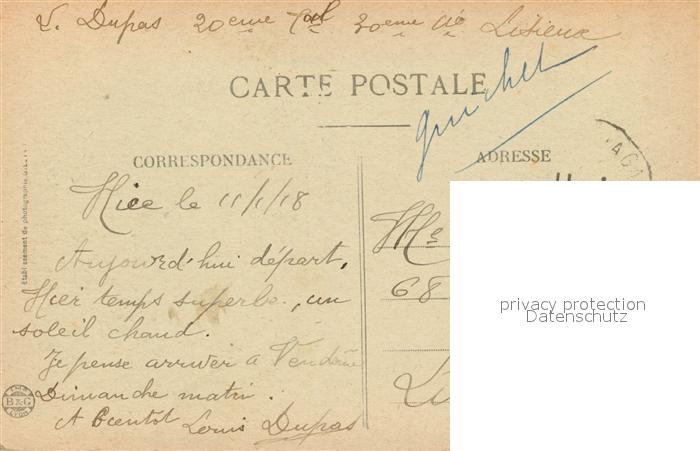 L. Dupas 20eme 30eme Cie Lisieux
CARTE POSTALE
guichet
CORRESPONDANCE
ADRESSE
Nice le 11/1/18
Aujourd'hui départ,
Hier temps superbe, un
soleil chaud.
Je pense arriver à Vendôme
Dimanche matin.
A Bientot Louis Dupas
Me
68
privacy protection
Datenschutz
B&G
LYON